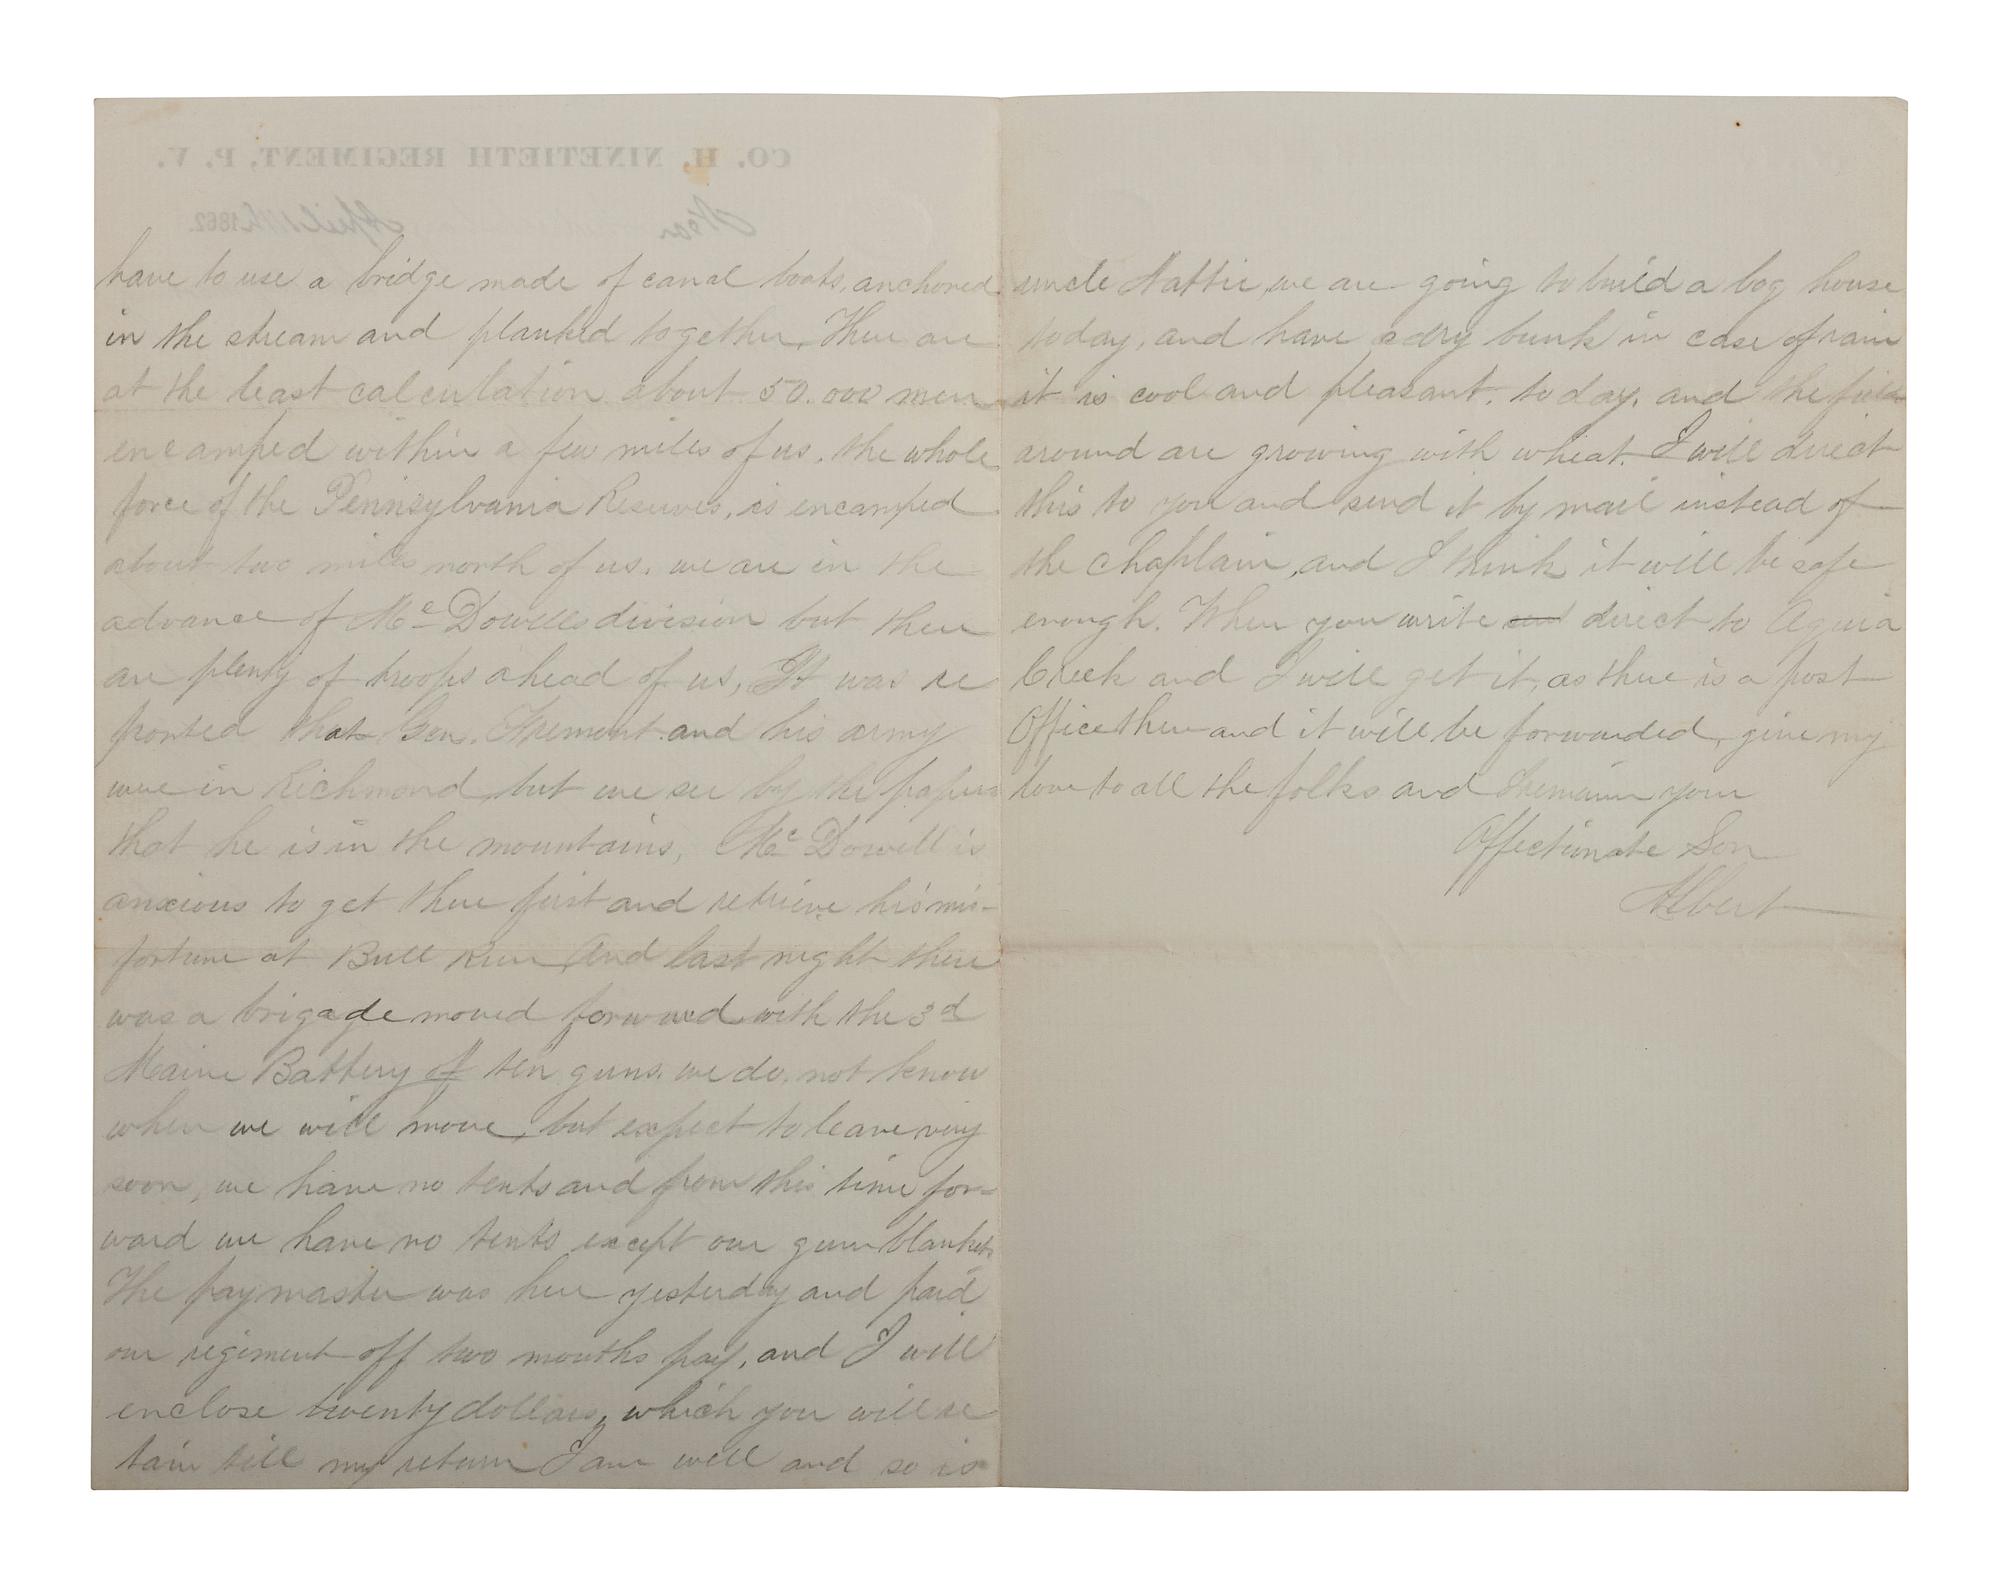 CO. H, NINETIETH REGIMENT, P. V.
Near April 1862.
have to use a bridge made of canal boats, anchored
in the stream and planked together. There are
at the least calculation about 50.000 men
encamped within a few miles of us. the whole
force of the Pennsylvania Reserves, is encamped
about two miles north of us. we are in the
advance of Mc Dowells division but there
are plenty of troops ahead of us, It was re
ported that Gen. Fremont and his army
were in Richmond, but we see by the papers
that he is in the mountains, Mc Dowell is
anxious to get there first and retrieve his mis-
fortune at Bull Run And last night there
was a brigade moved forward with the 3d
Maine Battery of ten guns. we do not know
when we will move, but expect to leave very
soon, we have no tents and from this time for-
ward we have no tents except our gum blankets
The paymaster was here yesterday and paid
our regiment off two months pay, and I will
enclose twenty dollars, which you will re
tain till my return I am well and so is
uncle Hattie, we are going to build a log house
today, and have a dry bunk in case of rain
it is cool and pleasant. today. and the fields
around are growing with wheat. I will direct
this to you and send it by mail instead of
the Chaplain, and I think it will be safe
enough. When you write direct to Aquia
Creek and I will get it, as there is a post
Office there and it will be forwarded, give my
love to all the folks and I remain your
Affectionate Son
Albert